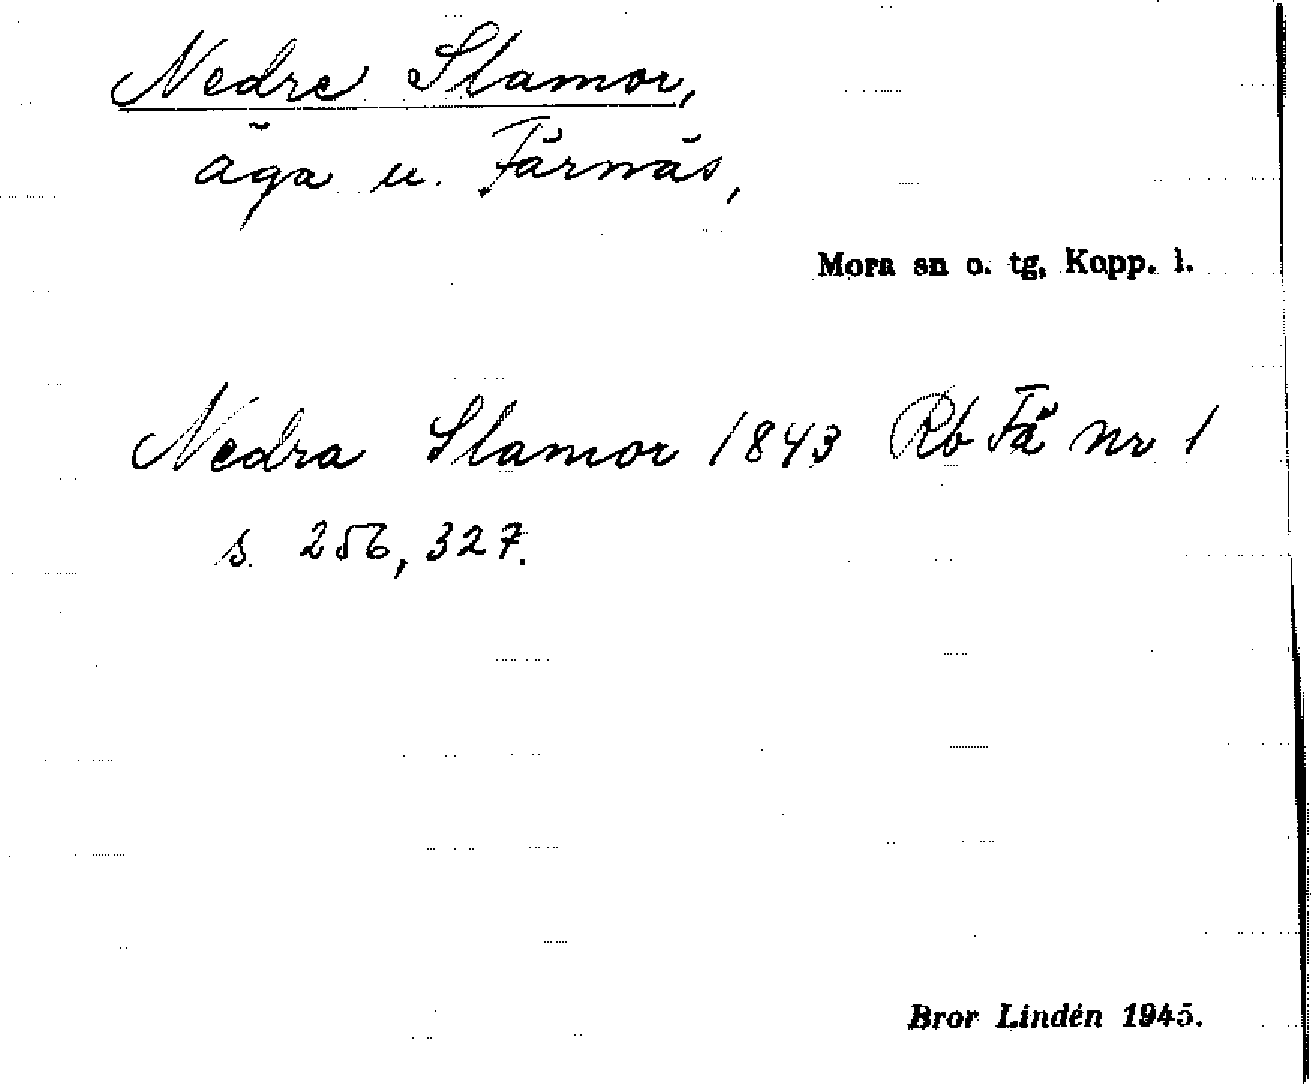 Nedre Slamor,
äga u. Färnäs,
Mora sn o. tg, Kopp. l.
Nedra Slamor 1843 Rb Fä nr 1
s. 256, 327.
Bror Lindén 1945.